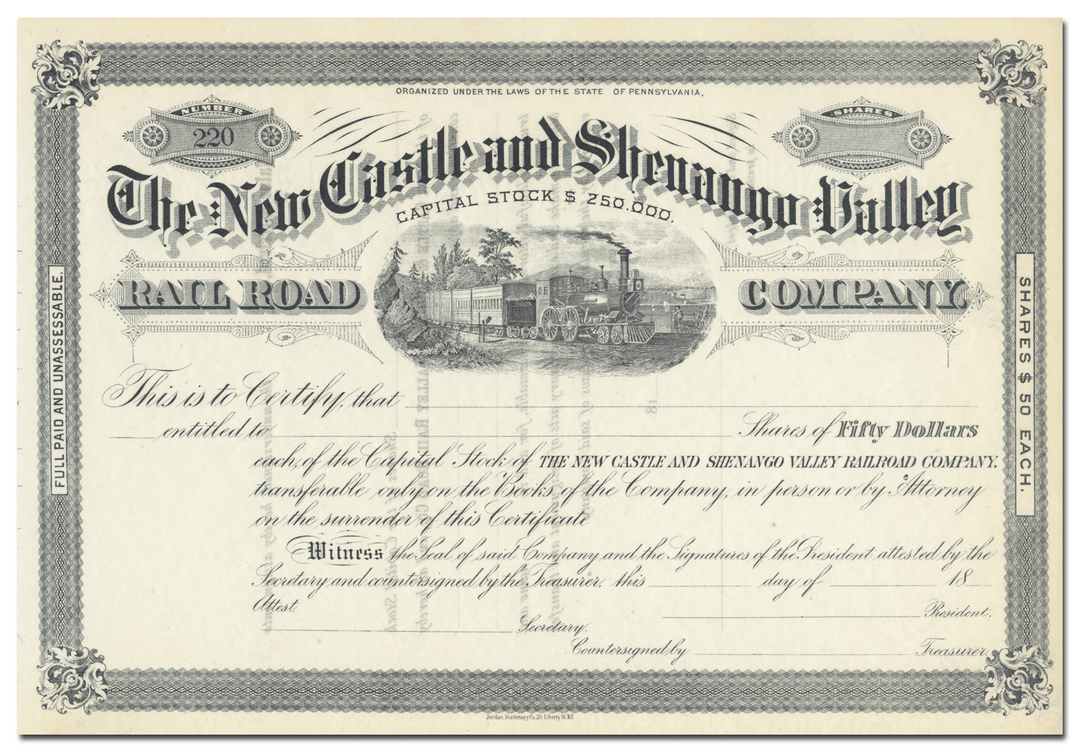 ORGANIZED UNDER THE LAWS OF THE STATE OF PENNSYLVANIA,
NUMBER
220
SHARES
The New Castle and Shenango Valley
CAPITAL STOCK $ 250.000.
RAIL ROAD COMPANY.
FULL PAID AND UNASSESSABLE.
SHARES $ 50 EACH.
This is to Certify, that
entitled to Shares of Fifty Dollars
each, of the Capital Stock of THE NEW CASTLE AND SHENANGO VALLEY RAILROAD COMPANY.
transferable only on the Books of the Company, in person or by Attorney
on the surrender of this Certificate
Witness the Seal of said Company and the Signatures of the President attested by the
Secretary and countersigned by the Treasurer, this day of 18
Attest
President.
Secretary.
Countersigned by Treasurer.
Jordan Stationery Co. 50 Liberty St. N.Y.